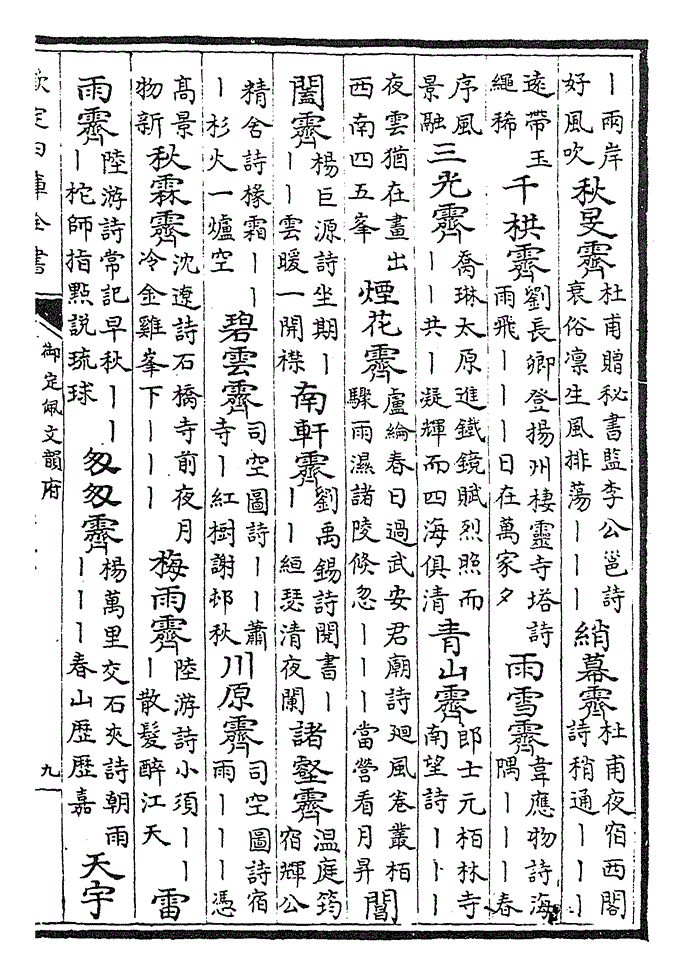 丨兩岸好風吹 秋旻霽 杜甫贈秘書監李公邕詩衰俗凛生風排蕩丨丨丨 綃幕霽 杜甫夜宿西閣詩稍通丨丨丨
逺帶玉繩稀 千栱霽 劉長卿登揚州棲靈寺塔詩雨飛丨丨丨日在萬家夕 雨雪霽 韋應物詩海隅丨丨丨春
序風景融 三光霽 喬琳太原進鐵鏡賦烈照而丨丨共丨凝輝而四海俱清 青山霽 郎士元栢林寺南望詩丨丨丨
夜雲猶在畫出西南四五峯 煙花霽 盧綸春日過武安君廟詩廻風卷叢栢驟雨濕諸陵倐忽丨丨丨當營看月昇 閶
闔霽 楊巨源詩坐期丨丨丨雲暖一開襟 南軒霽 劉禹錫詩閱書丨丨丨絙瑟清夜闌 諸壑霽 溫庭筠宿輝公
精舍詩椽霜丨丨丨杉火一爐空 碧雲霽 司空圖詩丨丨蕭寺丨紅樹謝邨秋 川原霽 司空圖詩宿雨丨丨丨憑
髙景物新 秋霖霽 沈遼詩石橋寺前夜月冷金雞峯下丨丨丨 梅雨霽 陸游詩小須丨丨丨散髪醉江天 雷
雨霽 陸游詩常記早秋丨丨丨柁師指點説琉球 匆匆霽 楊萬里交石夾詩朝雨丨丨丨春山歴歴嘉 天宇
欽定四庫全書
御定佩文韻府
九